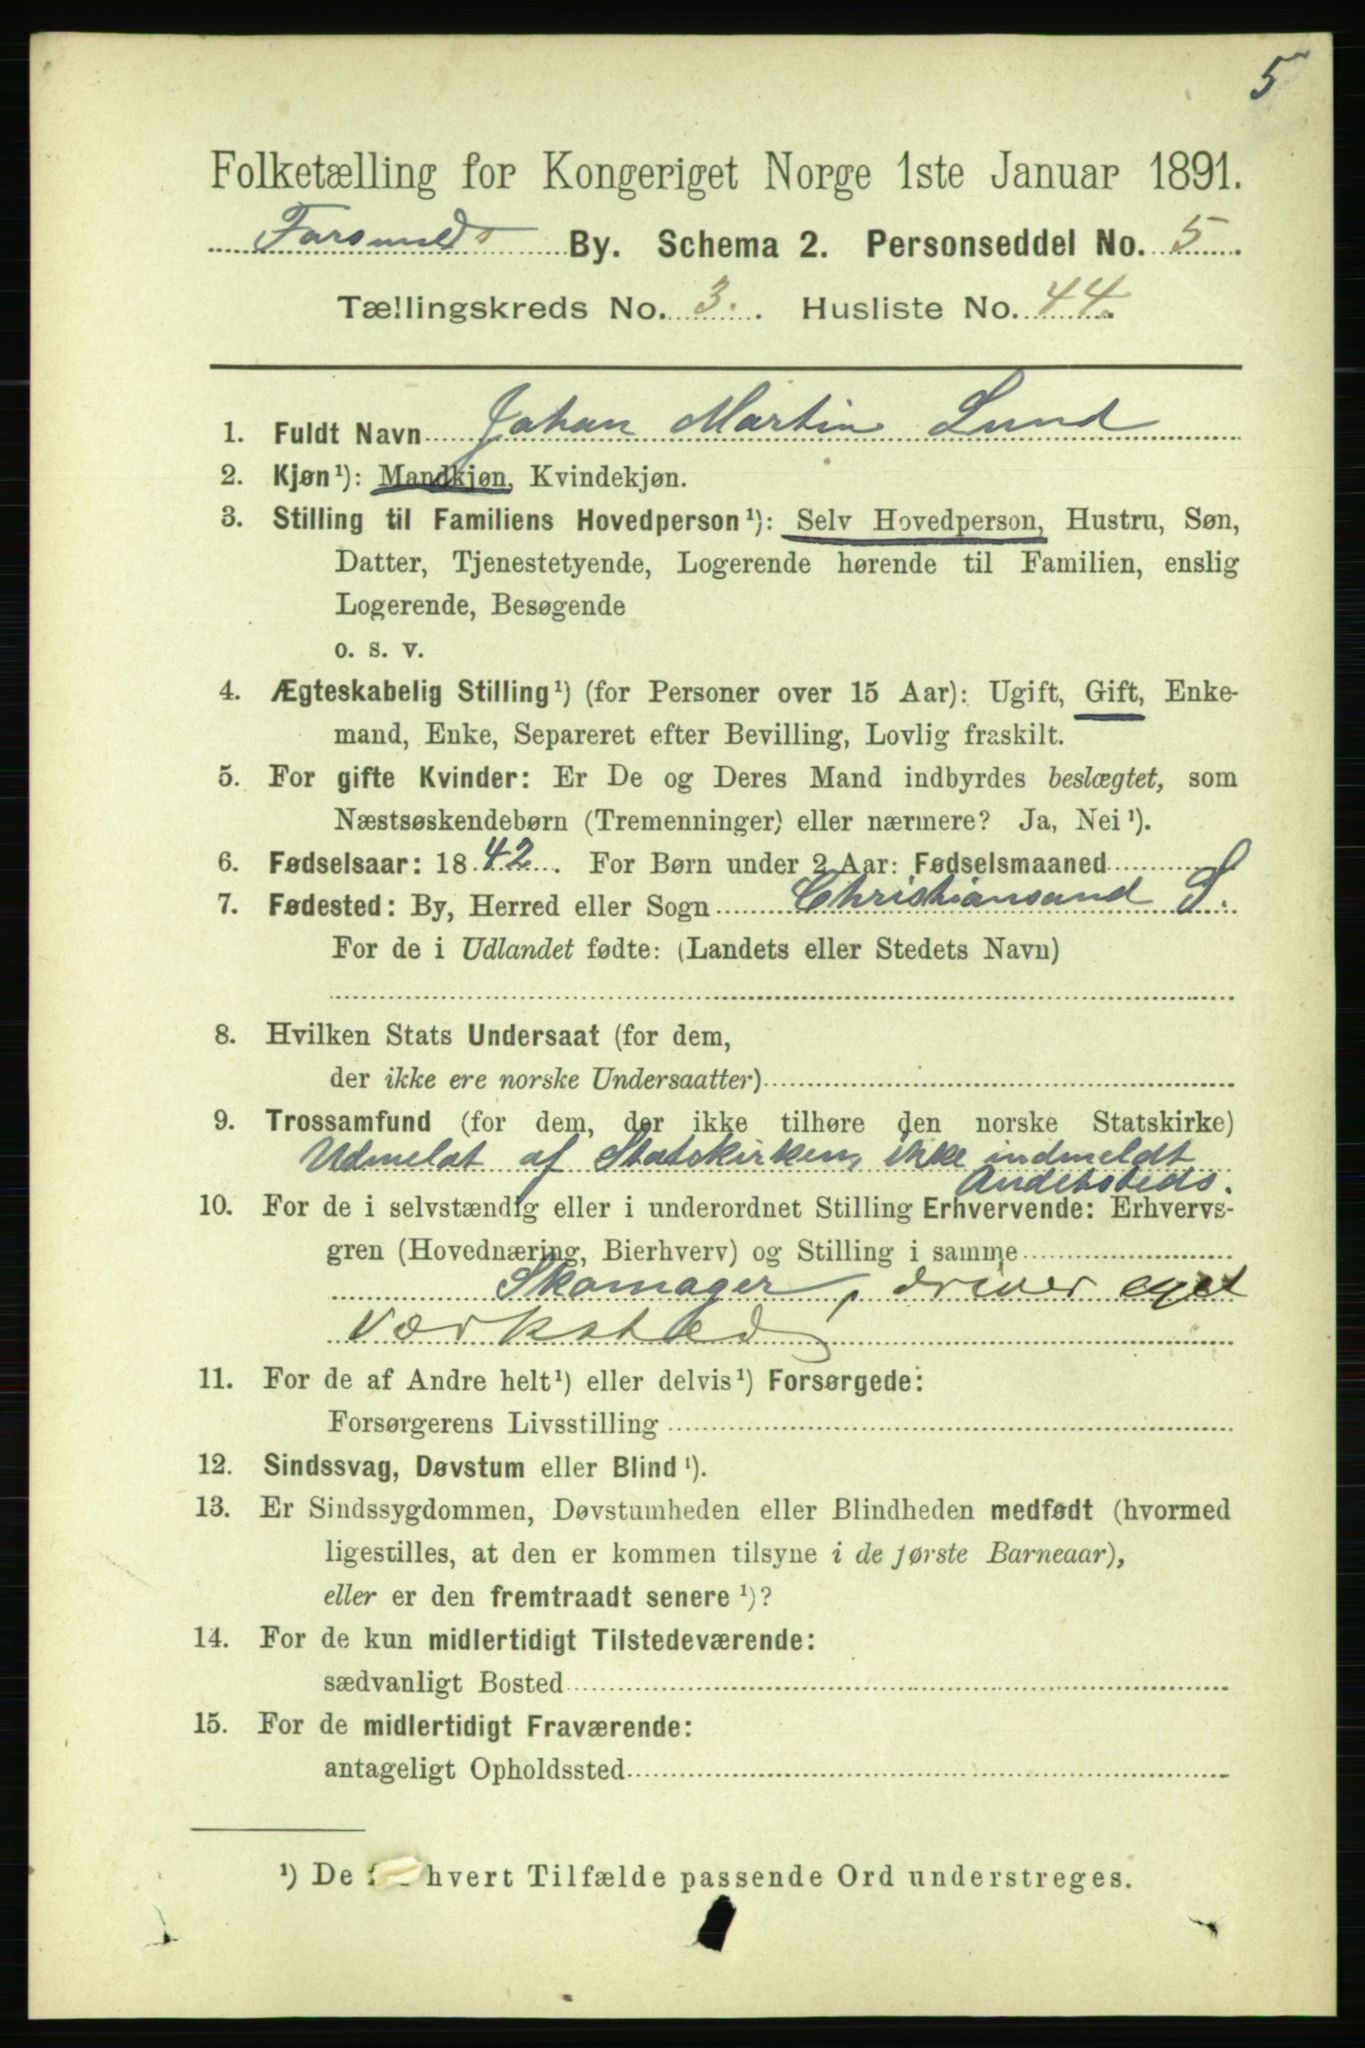 5
Folketælling for Kongeriget Norge 1ste Januar 1891.
Farsunds By. Schema 2. Personseddel No. 5
Tællingskreds No. 3. Husliste No. 44.
1. Fuldt Navn Johan Martin Lund
2. Kjøn¹): Mandkjøn, Kvindekjøn.
3. Stilling til Familiens Hovedperson¹): Selv Hovedperson, Hustru, Søn,
Datter, Tjenestetyende, Logerende hørende til Familien, enslig
Logerende, Besøgende
o. s. v.
4. Ægteskabelig Stilling¹) (for Personer over 15 Aar): Ugift, Gift, Enke-
mand, Enke, Separeret efter Bevilling, Lovlig fraskilt.
5. For gifte Kvinder: Er De og Deres Mand indbyrdes beslægtet, som
Næstsøskendebørn (Tremenninger) eller nærmere? Ja, Nei¹).
6. Fødselsaar: 1842. For Børn under 2 Aar: Fødselsmaaned
7. Fødested: By, Herred eller Sogn Christiansand S.
For de i Udlandet fødte: (Landets eller Stedets Navn)
8. Hvilken Stats Undersaat (for dem,
der ikke ere norske Undersaatter)
9. Trossamfund (for dem, der ikke tilhøre den norske Statskirke)
Udmeldt af Statskirken, ikke indmeldt
Andetsteds.
10. For de i selvstændig eller i underordnet Stilling Erhvervende: Erhvervs-
gren (Hovednæring, Bierhverv) og Stilling i samme
Skomager, driver eget
Værksted
11. For de af Andre helt¹) eller delvis¹) Forsørgede:
Forsørgerens Livsstilling
12. Sindssvag, Døvstum eller Blind¹).
13. Er Sindssygdommen, Døvstumheden eller Blindheden medfødt (hvormed
ligestilles, at den er kommen tilsyne i de første Barneaar),
eller er den fremtraadt senere¹)?
14. For de kun midlertidigt Tilstedeværende:
sædvanligt Bosted
15. For de midlertidigt Fraværende:
antageligt Opholdssted
¹) De hvert Tilfælde passende Ord understreges.